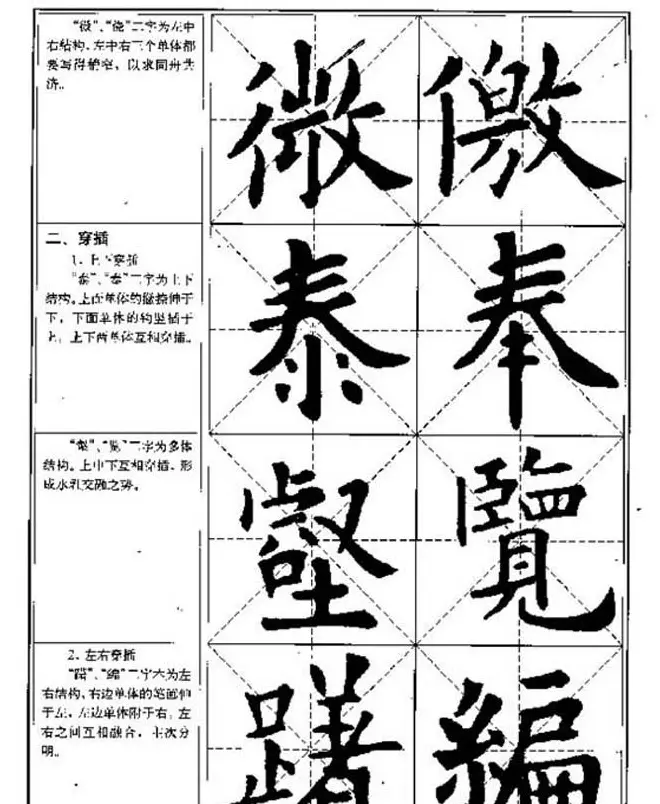 “微”、“傲”二字为左中
右结构,左中右三个单体都
要写得稍窄,以求同舟共
济。
微 傲
二、穿插
1．上下穿插
“泰”、“奉”二字为上下
结构。上面单体的撇捺伸于
下,下面单体的钩竖插于
上,上下两单体互相穿插。
泰 奉
“壑”、“览”二字为多体
结构。上中下互相穿插,形
成水乳交融之势。
壑 覽
2．左右穿插
二字本为左
右结构,右边单体的笔画伸
于左,左边单体附于右。左
右之间互相融合,主次分
明。
編